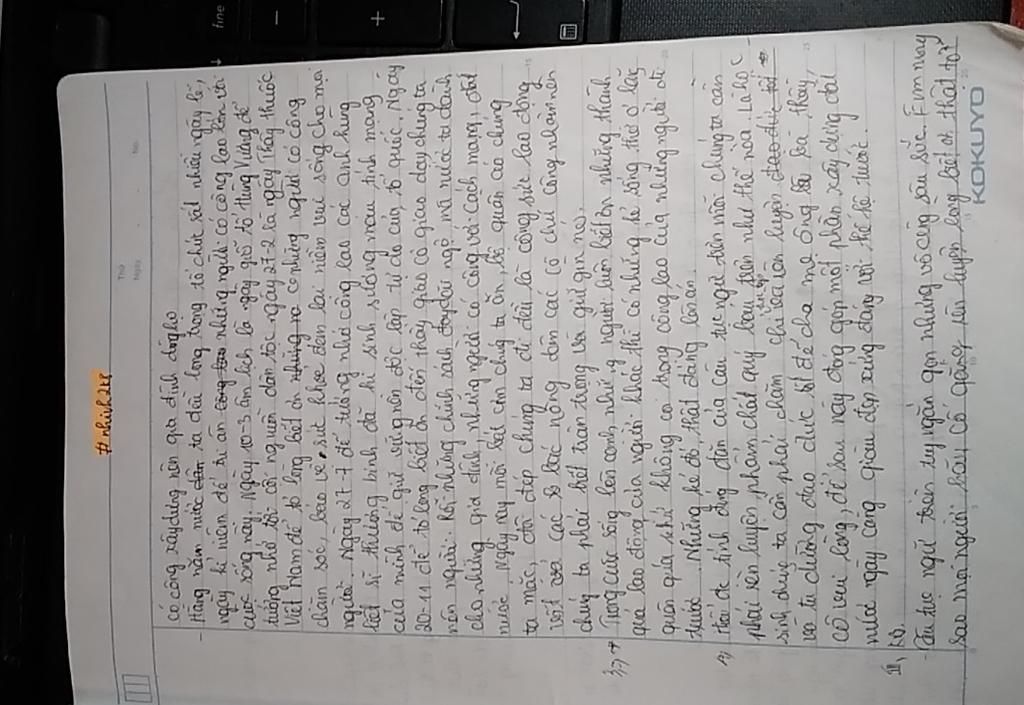 #nhinh2k8
Thứ
Ngày
No.
có công xây dựng nên gia đình dòng họ
- Hằng năm nước ta đều long trọng tổ chức rất nhiều ngày lễ,
ngày kỉ niệm để tri ân những người có công lao lớn với
cuộc sống này. Ngày 10-3 âm lịch là ngày giỗ tổ Hùng Vương để
tưởng nhớ tới cội nguồn dân tộc ngày 27-2 là ngày Thầy thuốc
Việt Nam để tỏ lòng biết ơn những người có công
chăm sóc, bảo vệ sức khỏe đem lại niềm vui sống cho mọi
người. Ngày 27-7 để tưởng nhớ công lao các anh hùng
liệt sĩ thương binh đã hi sinh xương máu tính mạng
của mình để giữ vững nền độc lập tự do của tổ quốc, Ngày
20-11 để tỏ lòng biết ơn đến thầy giáo cô giáo dạy chúng ta
nên người. Rồi những chính sách đãi ngộ mà nước ta dành
cho những gia đình những người có công với cách mạng, đất
nước ngày nay mỗi bát cơm chúng ta ăn, quần áo chúng
ta mặc, dép chúng ta đi đều là công sức lao động
vất vả các bác nông dân các cô chú công nhân nên
chúng ta phải biết trân trọng và giữ gìn nó.
3, → Trong cuộc sống bên cạnh những người luôn biết ơn những thành
quả lao động của người khác thì có những kẻ sống thờ ơ lãng
quên quá khứ không coi trọng công lao của những người đi
trước. Những kẻ đó, thật đáng lên án.
4, Thấy đc tính đúng đắn của câu tục ngữ trên mỗi chúng ta cần
phải rèn luyện phẩm chất quý báu trên như thế nào. Là học
sinh chúng ta cần phải chăm chỉ rèn luyện
và tu dưỡng đạo đức tốt để cha mẹ ông bà thầy,
cô vui lòng, để sau này đóng góp một phần xây dựng đất
nước ngày càng giàu đẹp xứng đáng với thế hệ trước.
III, KB.
- Câu tục ngữ trên tuy ngắn gọn nhưng vô cùng sâu sắc. Em mong
sao mọi người hãy cố gắng rèn luyện lòng biết ơn thật tốt
KOKUYO
fine